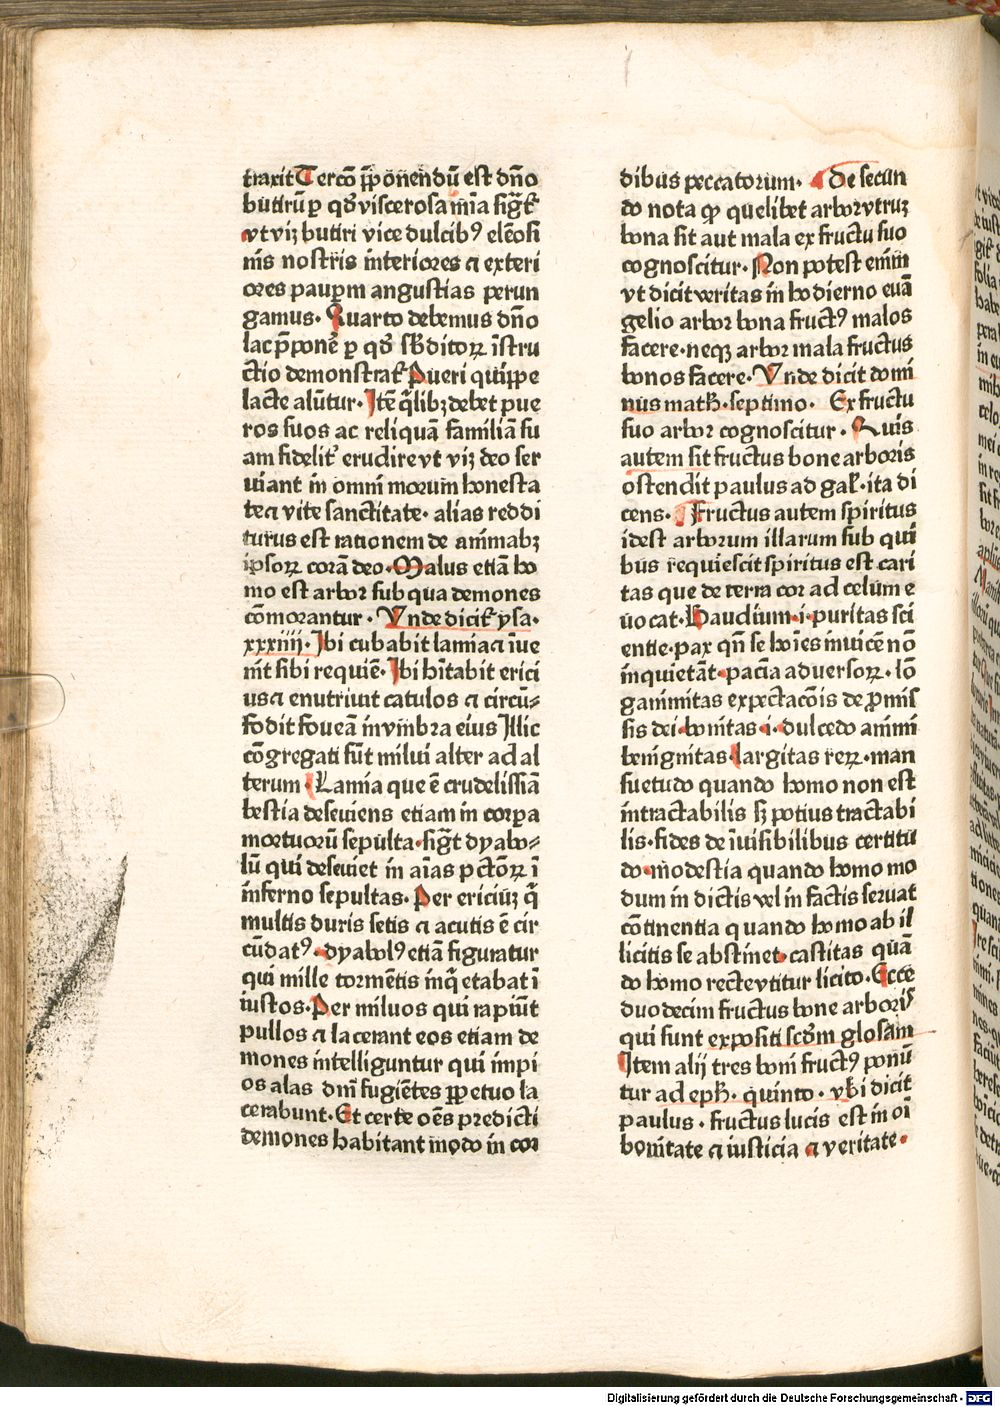 traxit Tercō ꝓponendū est dn̄o
butirū ꝑ qd̄ viscerosa mīa sigt᷑
vt viꝫ butiri vice dulcibꝰ elēosi
nis nostris interiores ⁊ exteri
ores pauꝑm angustias perun
gamus. Quarto debemus dn̄o
lac p̄ponē ꝑ qd̄ sb̄ditoꝝ īstru
ctio demonstrat᷑ Pueri quippe
lacte alūtur. Itē q̄libꝫ debet pue
ros suos ac reliquā familiā su
am fidelit᷑ erudire vt viꝫ deo ser
uiant in omni morum honesta
te ⁊ vite sanctitate. alias reddi
turus est rationem de animabꝫ
ipsoꝝ corā deo. Malus etiā ho
mo est arbor sub qua demones
cōmorantur. Vnde dicit᷑ ysa.
xxxiiii. Ibi cubabit lamia ⁊ īue
nit sibi requiē. Ibi hītabit erici
us ⁊ enutriunt catulos ⁊ circū⸗
fodit foueā in vmbra eius Illic
cōgregati sūt milui alter ad al
terum. Lamia que ē crudelissīa
bestia deseuiens etiam in corꝑa
mortuorū sepulta. sigt᷑ dyabo⸗
lū qui deseuiet in aīas pctōꝝ ī
inferno sepultas. Per ericiūꝫ q̄
multis duris setis ⁊ acutis ē cir
cūdatꝰ. dyabolꝰ etiā figuratur
qui mille tormētis inq̄etabat ī
iustos. Per miluos qui rapiūt
pullos ⁊ lacerant eos etiam de
mones intelliguntur qui impi
os alas dn̄i fugiētes ꝑpetuo la
cerabunt. Et certe oēs predicti
demones habitant modo in cor
dibus peccatorum. De secun
do nota ꝙ quelibet arbor vtruꝫ
bona sit aut mala ex fructu suo
cognoscitur. Non potest enim
vt dicit veritas in hodierno euā
gelio arbor bona fructꝰ malos
facere. neqꝫ arbor mala fructus
bonos facere. Vnde dicit domi
nus math̄. septimo. Ex fructu
suo arbor cognoscitur. Quis
autem sit fructus bone arboris
ostendit paulus ad gal̄. ita di
cens. Fructus autem spiritus
idest arborum illarum sub qui
bus requiescit spiritus est cari
tas que de terra cor ad celum e
uocat. Gaudium .i. puritas sci
entie. pax qn̄ se hoīes inuicē nō
inquietāt. paciā aduersoꝝ. lō
ganimitas expectacōis de ꝓmis
sis dei. bonitas .i. dulcedo animi
benignitas. largitas reꝝ. man
suetudo quando homo non est
intractabilis sꝫ potius tractabi
lis. fides de īuisibilibus certitu
do. modestia quando homo mo
dum in dictis vel in factis seruat
cōtinentia quando homo ab il
licitis se abstinet. castitas quā
do homo recte vtitur licito. Ecce
duodecim fructus bone arboris
qui sunt expositi scd̄m glosam
Item alij tres boni fructꝰ ponū
tur ad eph̄. quinto. vbi dicit
paulus. fructus lucis est in oī
bonitate ⁊ iusticia ⁊ veritate.
Digitalisierung gefördert durch die Deutsche Forschungsgemeinschaft - DFG